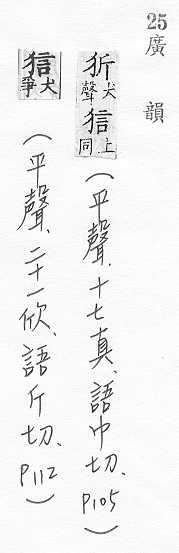 25廣韻
㹞犬聲㹤上同（平聲、十七真、語巾切、P105）
㹤犬爭（平聲、二十一欣、語斤切、P112）